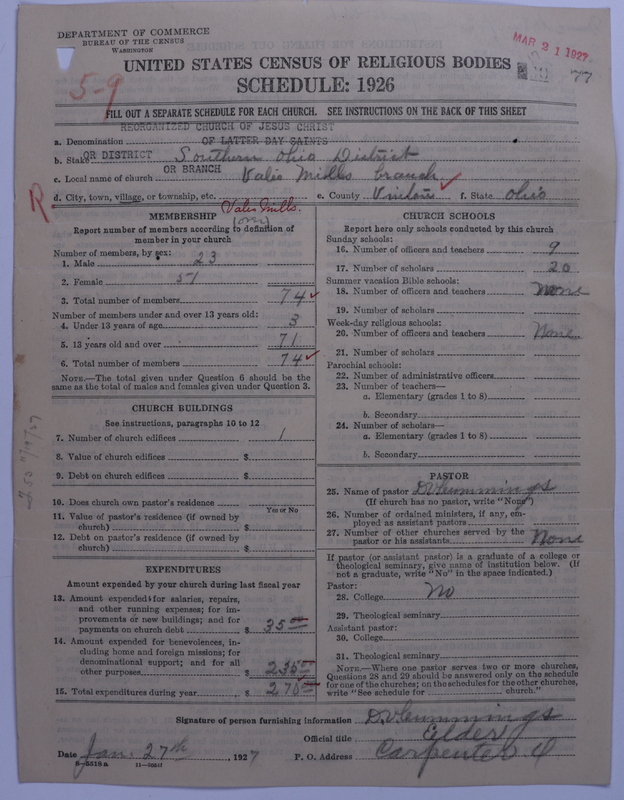 DEPARTMENT OF COMMERCE
BUREAU OF THE CENSUS
WASHINGTON
MAR 21 1927
77
UNITED STATES CENSUS OF RELIGIOUS BODIES
5-9
SCHEDULE: 1926
FILL OUT A SEPARATE SCHEDULE FOR EACH CHURCH. SEE INSTRUCTIONS ON THE BACK OF THIS SHEET
REORGANIZED CHURCH OF JESUS CHRIST
a. Denomination OF LATTER DAY SAINTS
b. Stake OR DISTRICT Southern Ohio District
c. Local name of church OR BRANCH Vales Mills branch
d. City, town, village, or township, etc. Vales Mills e. County Vinton f. State Ohio
R
MEMBERSHIP
Report number of members according to definition of
member in your church
Number of members, by sex:
1. Male 23
2. Female 51
3. Total number of members 74
Number of members under and over 13 years old:
4. Under 13 years of age 3
5. 13 years old and over 71
6. Total number of members 74
NOTE.—The total given under Question 6 should be the
same as the total of males and females given under Question 3.
CHURCH BUILDINGS
See instructions, paragraphs 10 to 12
7. Number of church edifices 1
8. Value of church edifices $
9. Debt on church edifices $
10. Does church own pastor's residence
Yes or No
11. Value of pastor's residence (if owned by
church) $
12. Debt on pastor's residence (if owned by
church) $
EXPENDITURES
Amount expended by your church during last fiscal year
13. Amount expended for salaries, repairs,
and other running expenses; for im-
provements or new buildings; and for
payments on church debt $ 35 00
14. Amount expended for benevolences, in-
cluding home and foreign missions; for
denominational support; and for all
other purposes $ 235
15. Total expenditures during year $ 270
CHURCH SCHOOLS
Report here only schools conducted by this church
Sunday schools:
16. Number of officers and teachers 9
17. Number of scholars 20
Summer vacation Bible schools:
18. Number of officers and teachers None
19. Number of scholars
Week-day religious schools:
20. Number of officers and teachers None
21. Number of scholars
Parochial schools:
22. Number of administrative officers
23. Number of teachers—
a. Elementary (grades 1 to 8)
b. Secondary
24. Number of scholars—
a. Elementary (grades 1 to 8)
b. Secondary
PASTOR
25. Name of pastor D V Cummings
(If church has no pastor, write "None")
26. Number of ordained ministers, if any, em-
ployed as assistant pastors
27. Number of other churches served by the
pastor or his assistants None
If pastor (or assistant pastor) is a graduate of a college or
theological seminary, give name of institution below. (If
not a graduate, write "No" in the space indicated.)
Pastor:
28. College No
29. Theological seminary
Assistant pastor:
30. College
31. Theological seminary
NOTE.—Where one pastor serves two or more churches,
Questions 28 and 29 should be answered only on the schedule
for one of the churches; on the schedules for the other churches,
write "See schedule for church."
Signature of person furnishing information D V Cummings
Official title Elder
Date Jan. 27th, 1927 P. O. Address Carpenter O